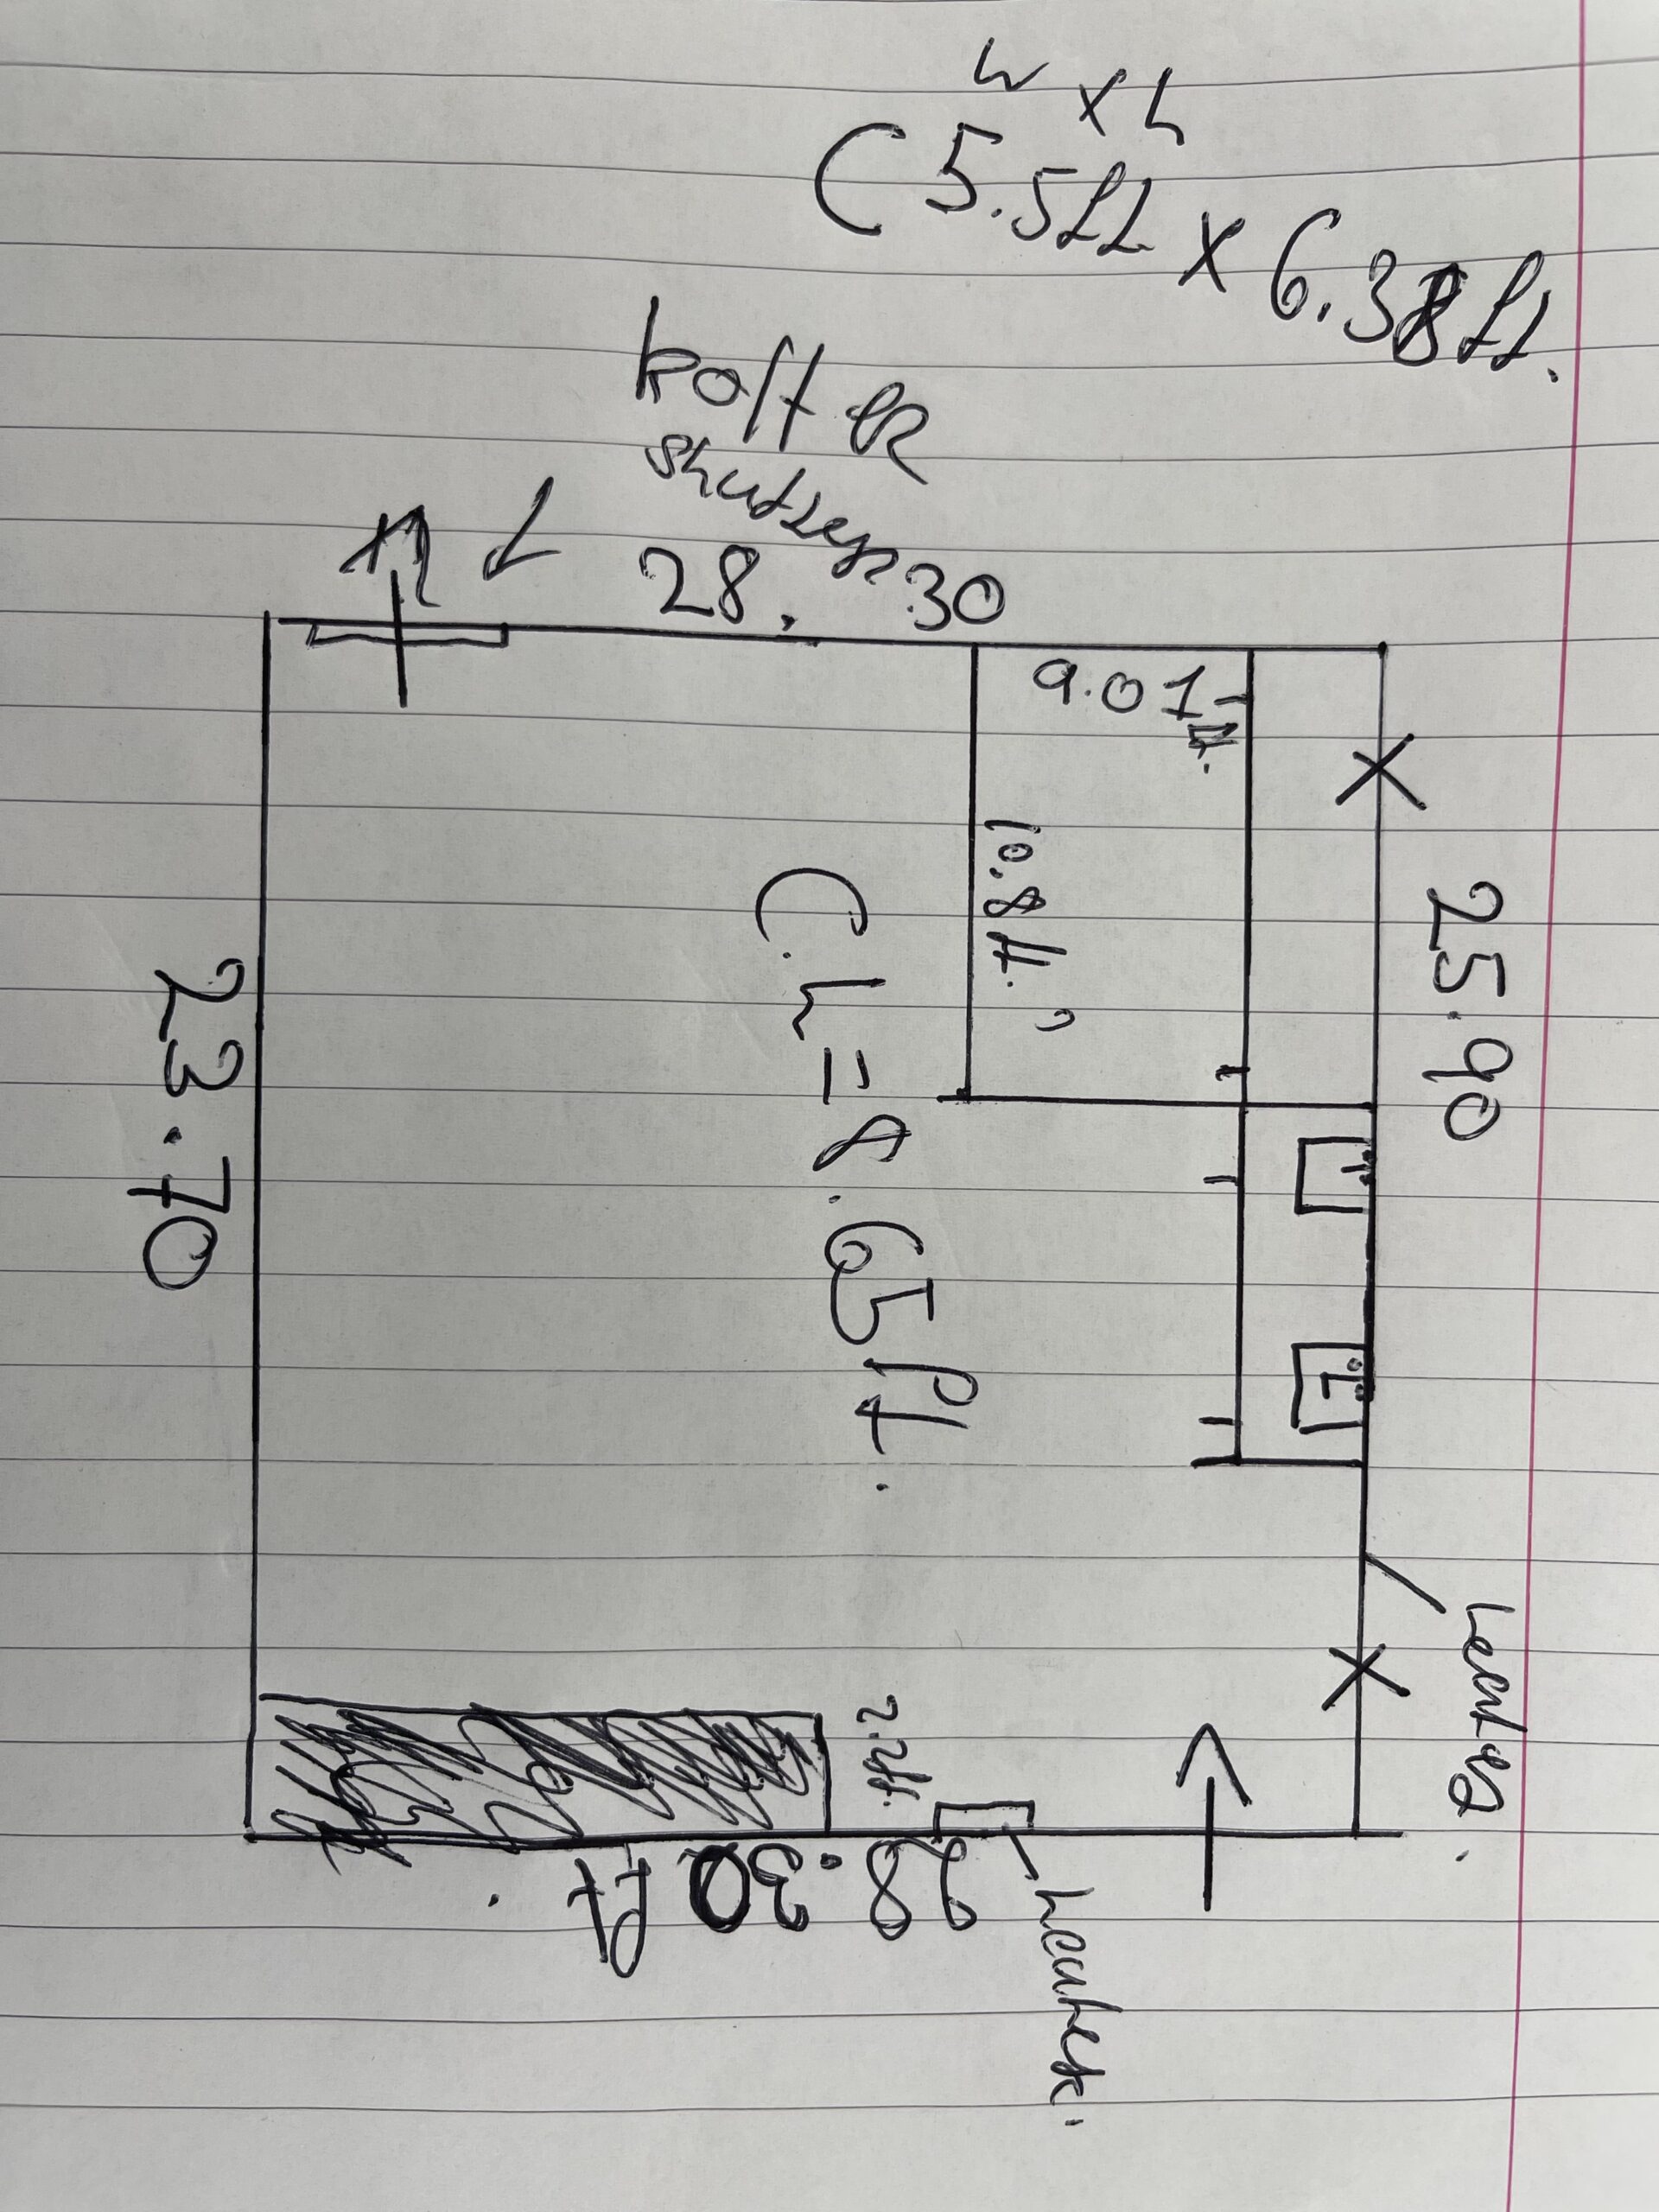 w x h
(5.5ft x 6.38ft.
Roller
shutter
28.30
9.01ft.
10.8ft.
25.90
C.h = 8.65ft.
23.70
Heater.
2.2ft.
28.30 ft.
Heater.